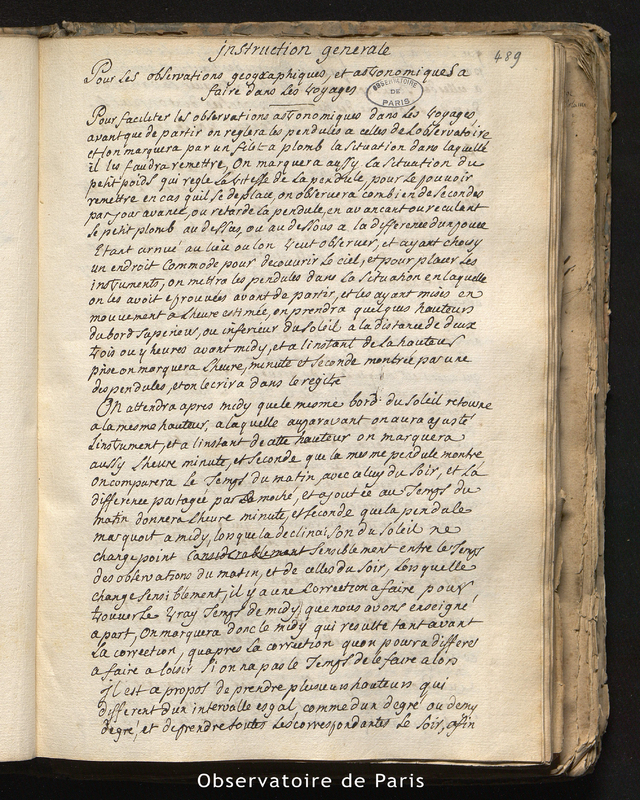 instruction generale
489
Pour Les observations geographiques, et astronomiques a
faire dans Les voyages
OBSERVATOIRE
DE
PARIS
Pour faciliter les observations astronomiques dans les voyages
avant que de partir on reglera les pendules a celles de Lobservatoire
et lon marquera par un fil et a plomb la situation dans laquelle
il les faudra remettre, On marquera aussy La situation du
petit poids qui regle La vitesse de La pendule, pour Le pouvoir
remettre en cas quil se deplace, on observera combien de secondes
par jour avance, ou retarde la pendule, en avancant ou reculant
Le petit plomb au dessas, ou au dessous a la difference dun pouce
Etant arrivé au lieu ou lon veut observer, et ayant choisy
un endroit Commode pour decouvrir Le ciel, et pour placer Les
instruments, on mettra les pendules dans La situation en laquelle
on les avoit eprouvées avant de partir, et les ayant mises en
mouvement a Lheure estimée, on prendra quelques hauteurs
du bord superieur, ou inferieur du soleil a la distance de deux
trois ou 4 heures avant midy, et a linstant de La hauteur
prise on marquera Lheure, minute et seconde montrée par une
des pendules, et on lecrira dans le registre
On attendra apres midy que le mesme bord du soleil retourne
a la mesme hauteur, a laquelle auparavant on aura ajusté
Linstrument, et a linstant de cette hauteur on marquera
aussy Lheure minute, et seconde que la mesme pendule montre
on comparera Le Temps du matin, avec celuy du soir, et La
difference partagée par moitié, et ajoutée au Temps du
matin donnera Lheure minute, et seconde que la pendule
marquoit a midy, lorsque la declinaison du soleil ne
change point Considerablement sensiblement entre le Temps
des observations du matin, et de celles du soir, Lors quelle
change sensiblement, il y a une Correction a faire pour
trouver Le vray Temps de midy que nous avons enseigné
a part, On marquera donc le midy qui resulte tant avant
La correction, qu apres La correction quon poura differer
a faire a loisir si on na pas le Temps de le faire alors
Il est a propos de prendre plusieurs hauteurs qui
different dun intervalle esgal, comme dun degré ou demy
degré, et de prendre toutes Les correspondantes Le soir, affin
Observatoire de Paris